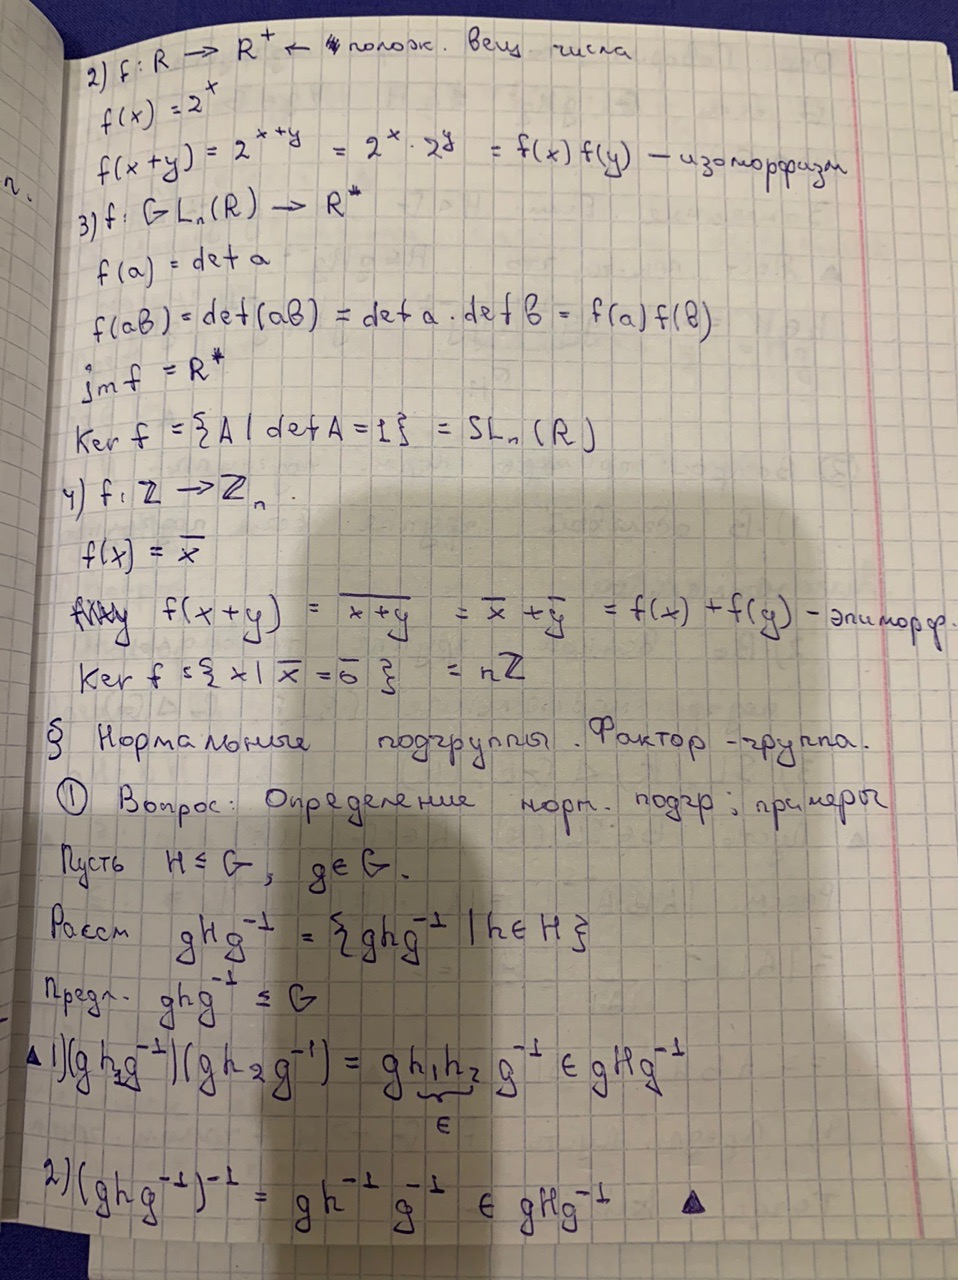 2) f: R → R⁺ ← полож. вещ. числа
f(x) = 2ˣ
f(x+y) = 2ˣ⁺ʸ = 2ˣ · 2ʸ = f(x) f(y) – изоморфизм
п.
3) f: GLₙ(R) → R*
f(a) = det a
f(aв) = det(aв) = det a · det в = f(a) f(в)
Jm f = R*
Ker f = {A | det A = 1} = SLₙ(R)
4) f: ℤ → ℤₙ.
f(x) = x̅
f(x+y) = x̅+̅y̅ = x̅ + y̅ = f(x) + f(y) – эпиморф.
Ker f = {x | x̅ = 0̅} = nℤ
§ Нормальные подгруппы. Фактор-группа.
① Вопрос: Определение норм. подгр; примеры
Пусть H ≤ G, g ∈ G.
Рассм gHg⁻¹ = {ghg⁻¹ | h ∈ H}
Предл. ghg⁻¹ ≤ G
▲ 1) (gh₁g⁻¹)(gh₂g⁻¹) = gh₁h₂g⁻¹ ∈ gHg⁻¹
∈
2) (ghg⁻¹)⁻¹ = gh⁻¹ g⁻¹ ∈ gHg⁻¹ ▲